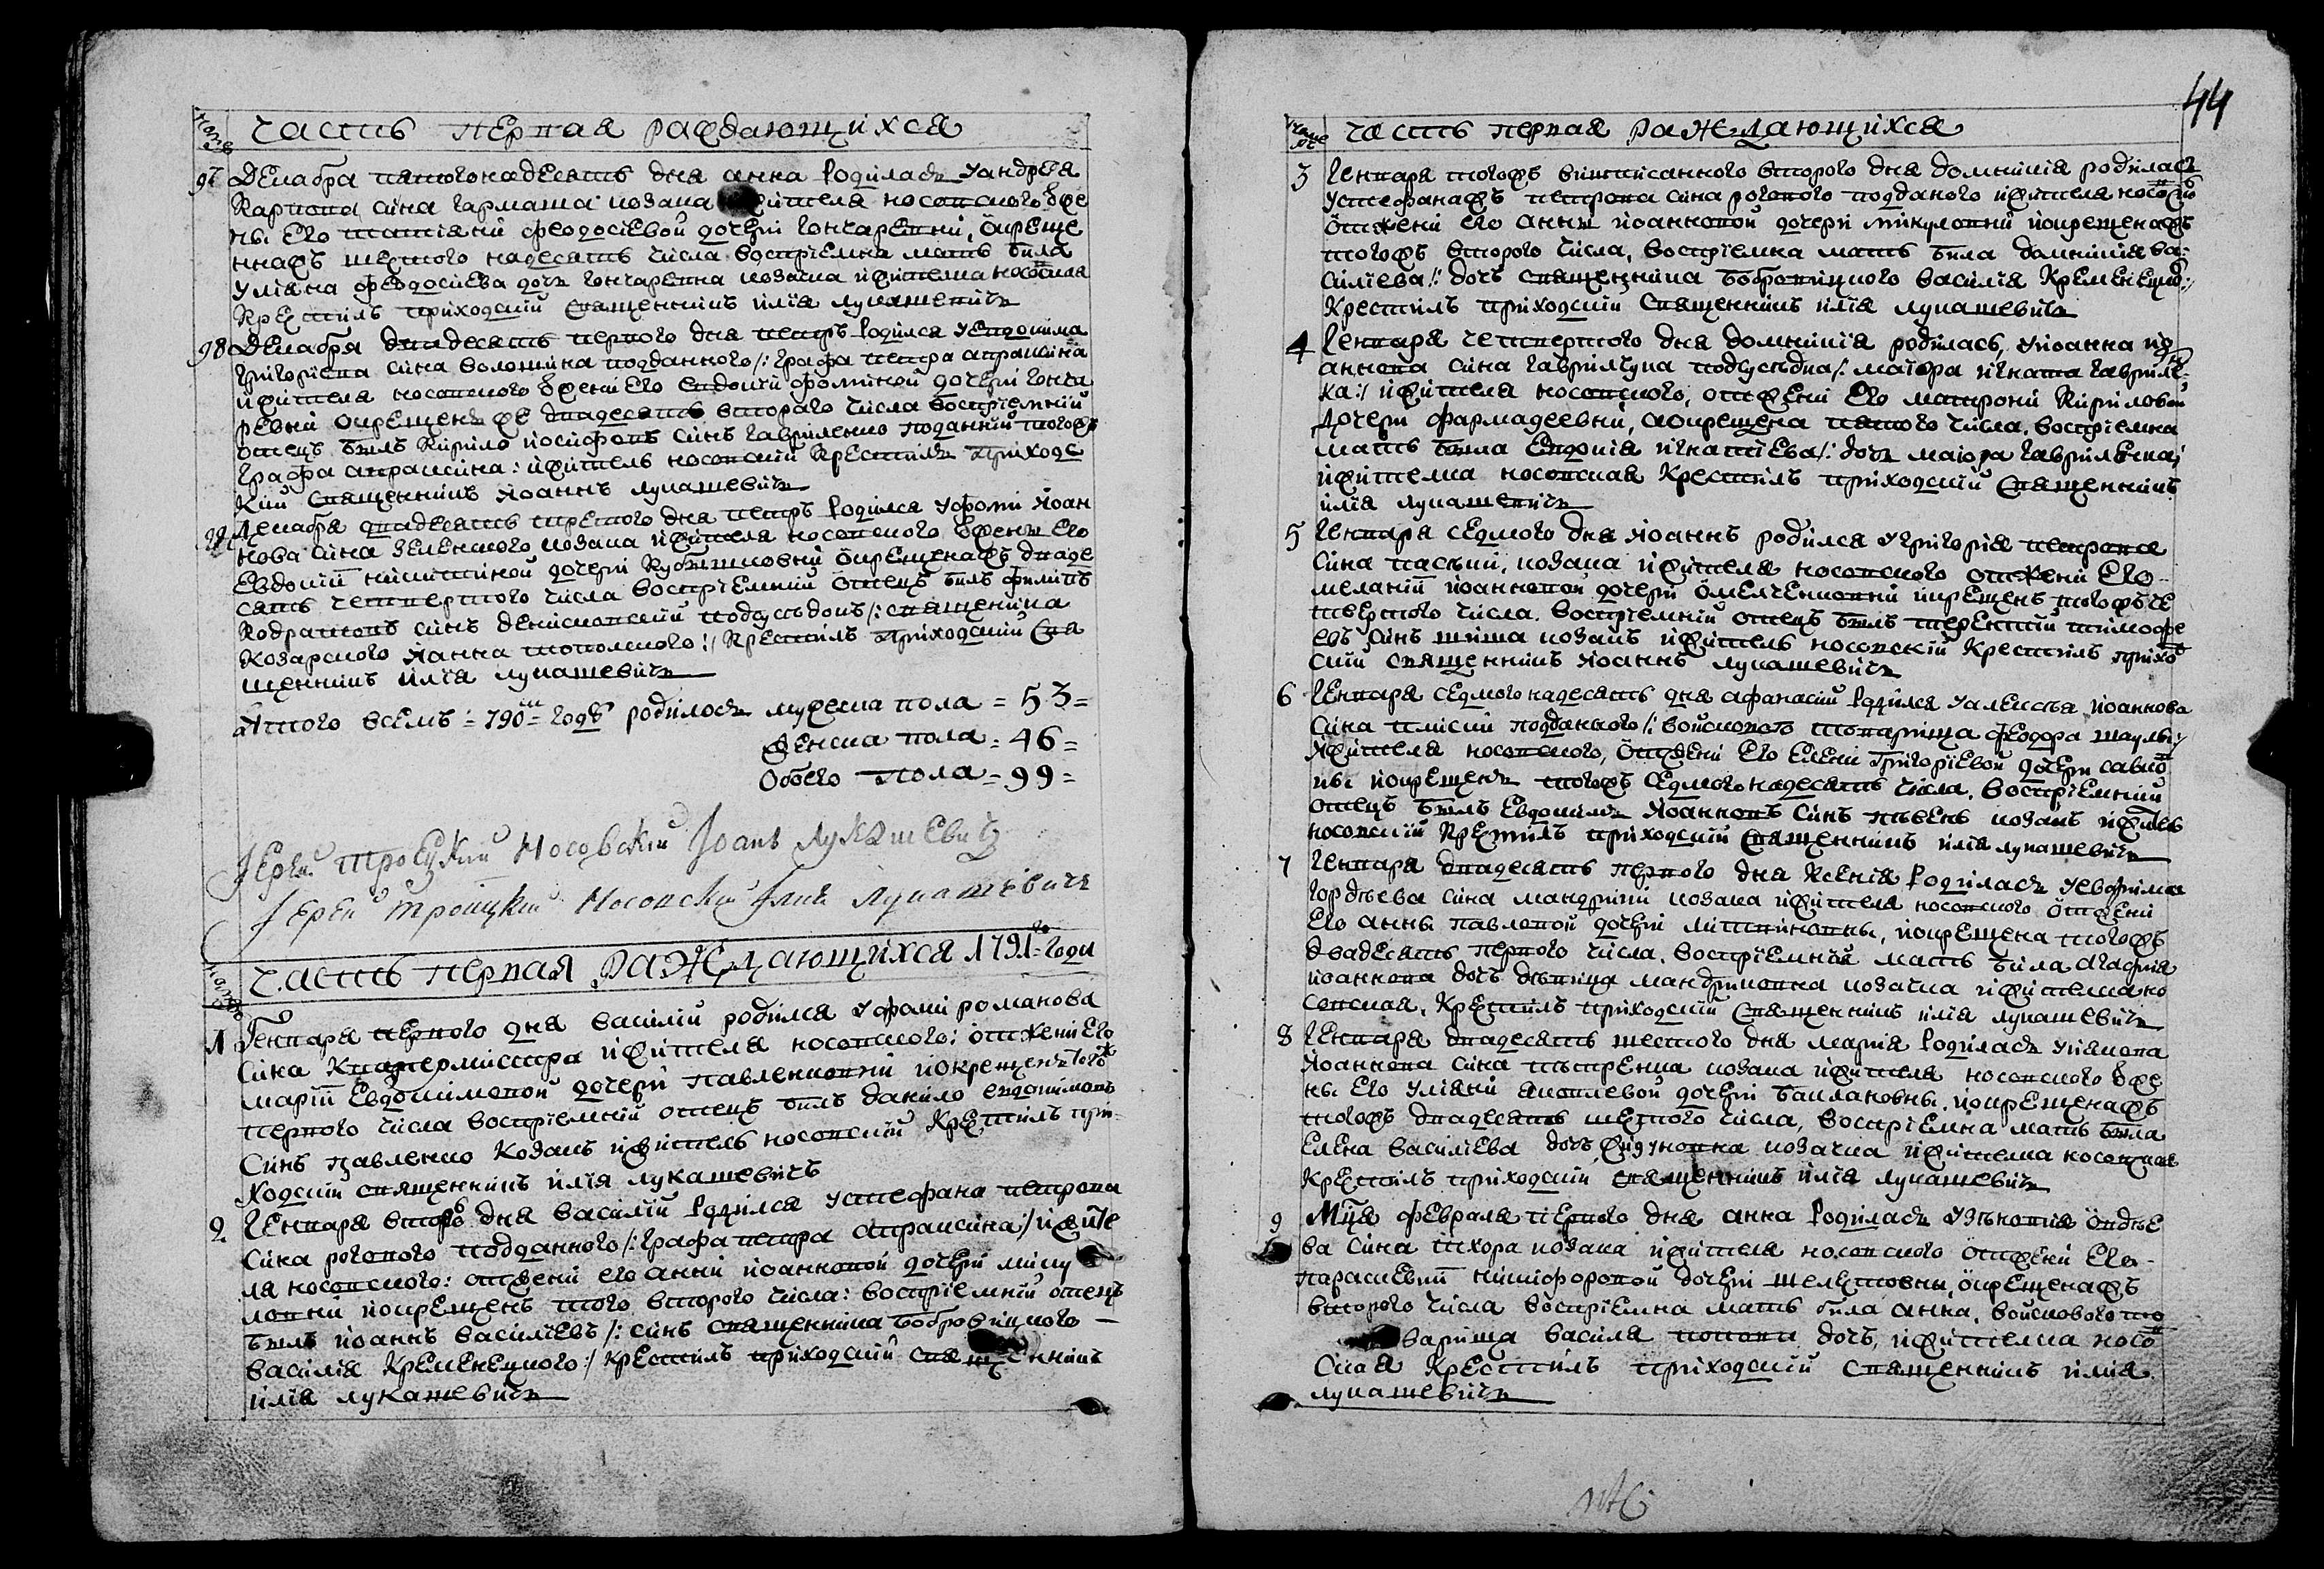 часть первая раждающихся
97 Декабра пятогонадесять дня анна родилась уандрея
карпова сина гармаша козака жителя носовского ѿ же
ны его татіяни феодосіевой дочері гончаревни, окреще
ннажъ шестого надесять числа воспріемна мать била
уліяна феодосіева дочь гончаревна козачка жителка носовская
крестилъ приходскій священникъ илія лукашевичъ
98 Декабря двадесять первого дня петръ родился уевдокима
григоріева сина волошина подданного /: графа петра апраксина
жителя носовского ѿ жени его евдокіи фоминой дочері гонча
ревни окрещенъ же двадесять второго числа воспріемній
отецъ билъ кирило іосифовъ синъ гавриленко подданній тогожъ
графа апраксина: житель носовскій крестилъ приходс
кій священникъ іоаннъ лукашевичъ
99 Декабра двадесять третого дня петръ родился уфоми іоан
нова сина зеленского козака жителя носовского ѿ жени его
евдокіи никитиной дочері кубишковни окрещенажъ дваде
сять четвертого числа воспріемній отецъ билъ филипъ
кодратовъ синъ денисовскій подсусѣдокъ /: священика
козарского іанна топольского :/ крестилъ приходскій свя
щенникъ илія лукашевичъ
Итого всемъ = 790 = годѣ родилось мужеска пола = 53 =
женска пола = 46 =
обоего пола = 99 =
Іерей троецкій Носовскій Іоанъ Лукашевичъ
Іерей троицкій Носовскій Илія Лукашевичъ
часть первая раждающихся 1791го года
1 Генваря первого дня василій родился уфоми романова
сина квартермистра жителя носовского: отжени его
маріи евдокимовой дочери павленковни іокрещенъ тогож
первого числа воспріемній отецъ билъ данило евдокимовъ
синъ павленко козакъ житель носовскій крестилъ при-
ходскій священникъ илія лукашевичъ
2 Генваря второго дня василій родился устефана петрова
сина рогового подданного /: графа петра апраксина :/ жите
ля носовского: отжени его анни іоанновой дочері мику
ловни іокрещенъ того второго числа: воспріемній отецъ
билъ іоаннъ василіевъ /: синъ священника бобровицкого
василія кременецкого :/ крестилъ приходскій священникъ
илія лукашевичъ
44
часть первая раждающихся
3 Генваря тогожъ вишписанного второго дня домникія родилась
устефанажъ петрова сина рогового подданого жителя носовского
отжени его анни іоанновой дочері микуловни іокрещенажъ
тогожъ второго числа, воспріемна мать била домникія ва-
силіева /: дочъ священника бобровицкого василія кременецкого :/
крестилъ приходскій священникъ илія лукашевичъ
4 Генваря четвертого дня домникія родилась, уіоанна іо
аннова сина гаврилчука подсусѣдка /: маіора игната гаврилен
ка :/ жителя носовского, отжени его матрони кириловой
дочери фармадеевни, аокрещена пятого числа. воспріемна
мать била евдокія игнатіева /: дочъ маіора гавриленка
жителка носовская крестилъ приходскій священникъ
илія лукашевичъ
5 Генваря седмого дня іоаннъ родился угригорія петрова
сина паскки, козака жителя носовского отжени его
меланіи іоанновой дочері омелченковни ікрещенъ тогожъ че
твертого числа. воспріемній отецъ билъ терентій тимофе
евъ синъ шиша козакъ житель носовскій крестилъ прихо
скій священникъ іоаннъ лукашевичъ
6 Генваря седмого надесять дня афанасій родился уалексѣя іоаннова
сина плиски подданного /: войскового товарища феодора шаули :/
жителя носовского, отжени его елени григоріевой дочери савко
ни іокрещенъ тогожъ седмого надесять числа. воспріемній
отецъ билъ евдокимъ іоанновъ синъ пѣвень козакъ житель
носовскій крестилъ приходскій священникъ илія лукашевичъ
7 Генваря двадесять первого дня ксенія родилась уевфима
гордѣева сина мандрики козака жителя носовского отжени
его анни павловой дочері литвиновни, іокрещена тогожъ
двадесять первого числа. воспріемній мать била агафія
іоаннова дочъ дѣвица мандриковна козачка жителка но
совская. крестилъ приходскій священникъ илія лукашевичъ
8 Генваря двадесять шестого дня марія родилась уіякова
іоаннова сина пѣтренка козака жителя носовского ѿ же
ни его уліяни яковлевой дочері баклановни. іокрещенажъ
тогожъ двадесять шестого числа, воспріемна мать била
елена василіева дочъ козачка жителка носовская
крестилъ приходскій священникъ илія лукашевичъ
9 Мца февраля первого дня анна родилась узѣновія овдѣе
ва сина тхора козака жителя носовского отжени его
параскевіи никифоровой дочері шелестовни, окрещенажъ
второго числа воспріемна мать била анна, войскового то
варища василя поповй дочъ, жителка носо
ская крестилъ приходскій священникъ илия
лукашевичъ